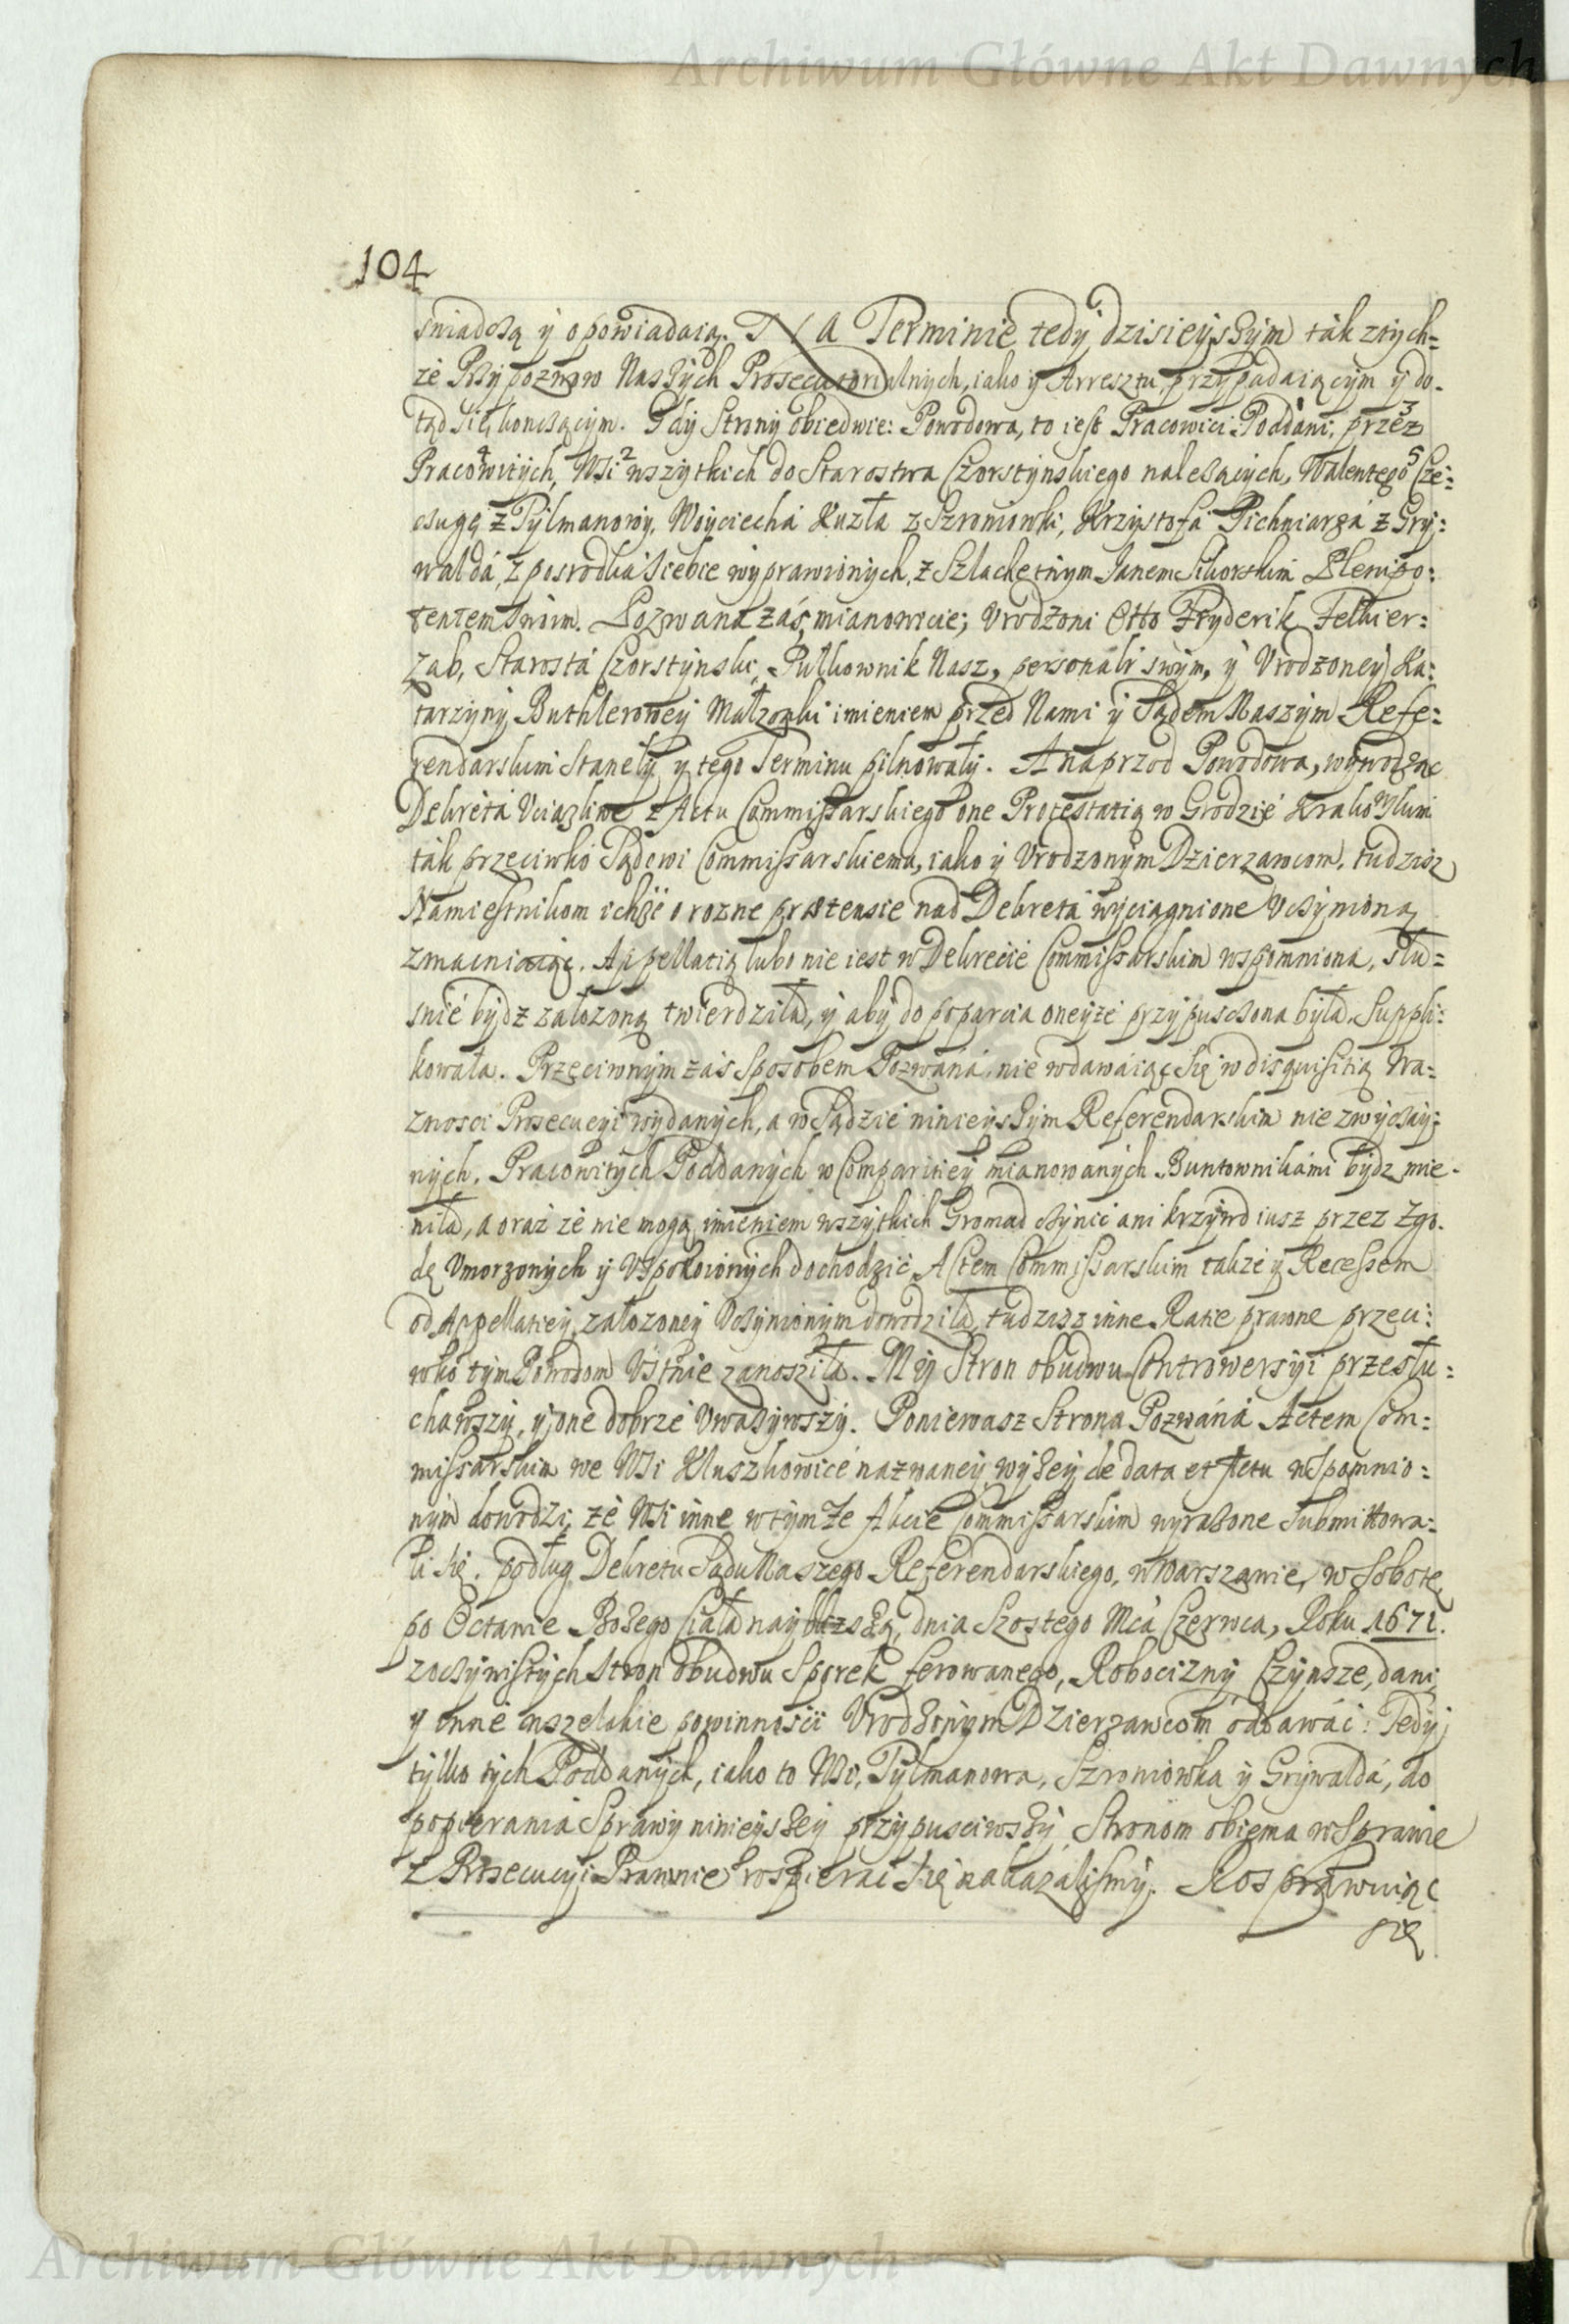 Archiwum Główne Akt Dawnych
104
świadczą y opowiadaią. Na Terminie tedy dzisieyszym tak z tych=
że Przypozwow Naszych Prosecutorialnych, iako y Arresztu przypadaiącym y do=
tąd się konczącym. Gdy Strony obiedwie: Powodowa, to iest Pracowici Poddani, przez
Pracowitych, Wsi wszytkich do Starostwa Czorstynskiego należących, Walentego Cze=
czugę z Tylmanowy, Woyciecha Kuzla z Szromowki, Krzysztofa Pichniarza z Gry=
wałda, z posrodka siebie wyprawionych, z Szlachetnym Janem Sikorskim Plenipo=
tentem swoim. Pozwana zaś, mianowicie; Vrodzoni Otto Fryderik Felkier=
zab, Starosta Czorstynski, Pułkownik Nasz, personali swym, y Vrodzoney Ka=
tarzyny Buthlerowey Małzonki imieniem przed Nami y Sądem Naszym Refe=
rendarskim Staneły y tego Terminu pilnowały. A naprzod Powodowa, wywodząc
Dekreta Vciązliwe z Actu Commissarskiego one Protestatią w Grodzie Krakowskim
tak przeciwko Sądowi Commissarskiemu, iako y Vrodzonym Dzierzawcom, tudzisz
Namiestnikom ichże o rozne prætensie nad Dekreta wyciągnione Vczynioną
zmacniaiąc. Appellatią lubo nie iest w Dekrecie Commissarskim wspomniona, słu=
snie bydź załozoną twierdziła, y aby do poparcia oneyże przypuszczona była, Suppli=
kowała. Przeciwnym zaś Sposobem Pozwana, nie wdawaiąc się w disquisitią Wa=
znosci Prosecucyi wydanych, a w Sądzie ninieyszym Referendarskim nie zwyczay=
nych, Pracowitych Poddanych w Comparitiey mianowanych Buntownikami bydz mie=
niła, a oraz że nie mogą imieniem wszytkich Gromad czynić ani krzywd iusz przez Zgo=
dę Vmorzonych y Vspokoionych dochodzić, Actem Commissarskim takze y Recessem
od Appellatiey załozoney Vczynionym dowodziła, tudzisz inne Ratie prawne przeci=
wko tym Powodom Vstnie zanosziła. My Stron obudwu Controwersyi przesłu=
chawszy, y one dobrze Vważywszy. Poniewasz Strona Pozwana Actem Com=
missarskim we Wsi Kluszkowice nazwaney wyżey de data et Actu wspomnio=
nym dowodzi, że Wsi inne w tymże Akcie Commissarskim wyrażone Submittowa=
li się, podług Dekretu Sądu Naszego Referendarskiego, w Warszawie, w Sobotę
po Octawie Bożego Ciała nayblizszą, dnia Szostego Mca Czerwca, Roku 1671.
z oczywistych Stron obudwu Sporek ferowanego, Robocizny Czynsze, dani
y inne wszelakie powinnoscii Vrodzonym Dzierzawcom oddawać: Tedy
tylko tych Poddanych, iako to Wsi, Tylmanowa, Szromowka y Grywałda, do
popierania Sprawy ninieyszey przypusciwszy Stronom obiema w Sprawie
z Prosecucyi Prawnie rospierac się nakazalismy. Rosprawuiąc
się
Archiwum Główne Akt Dawnych